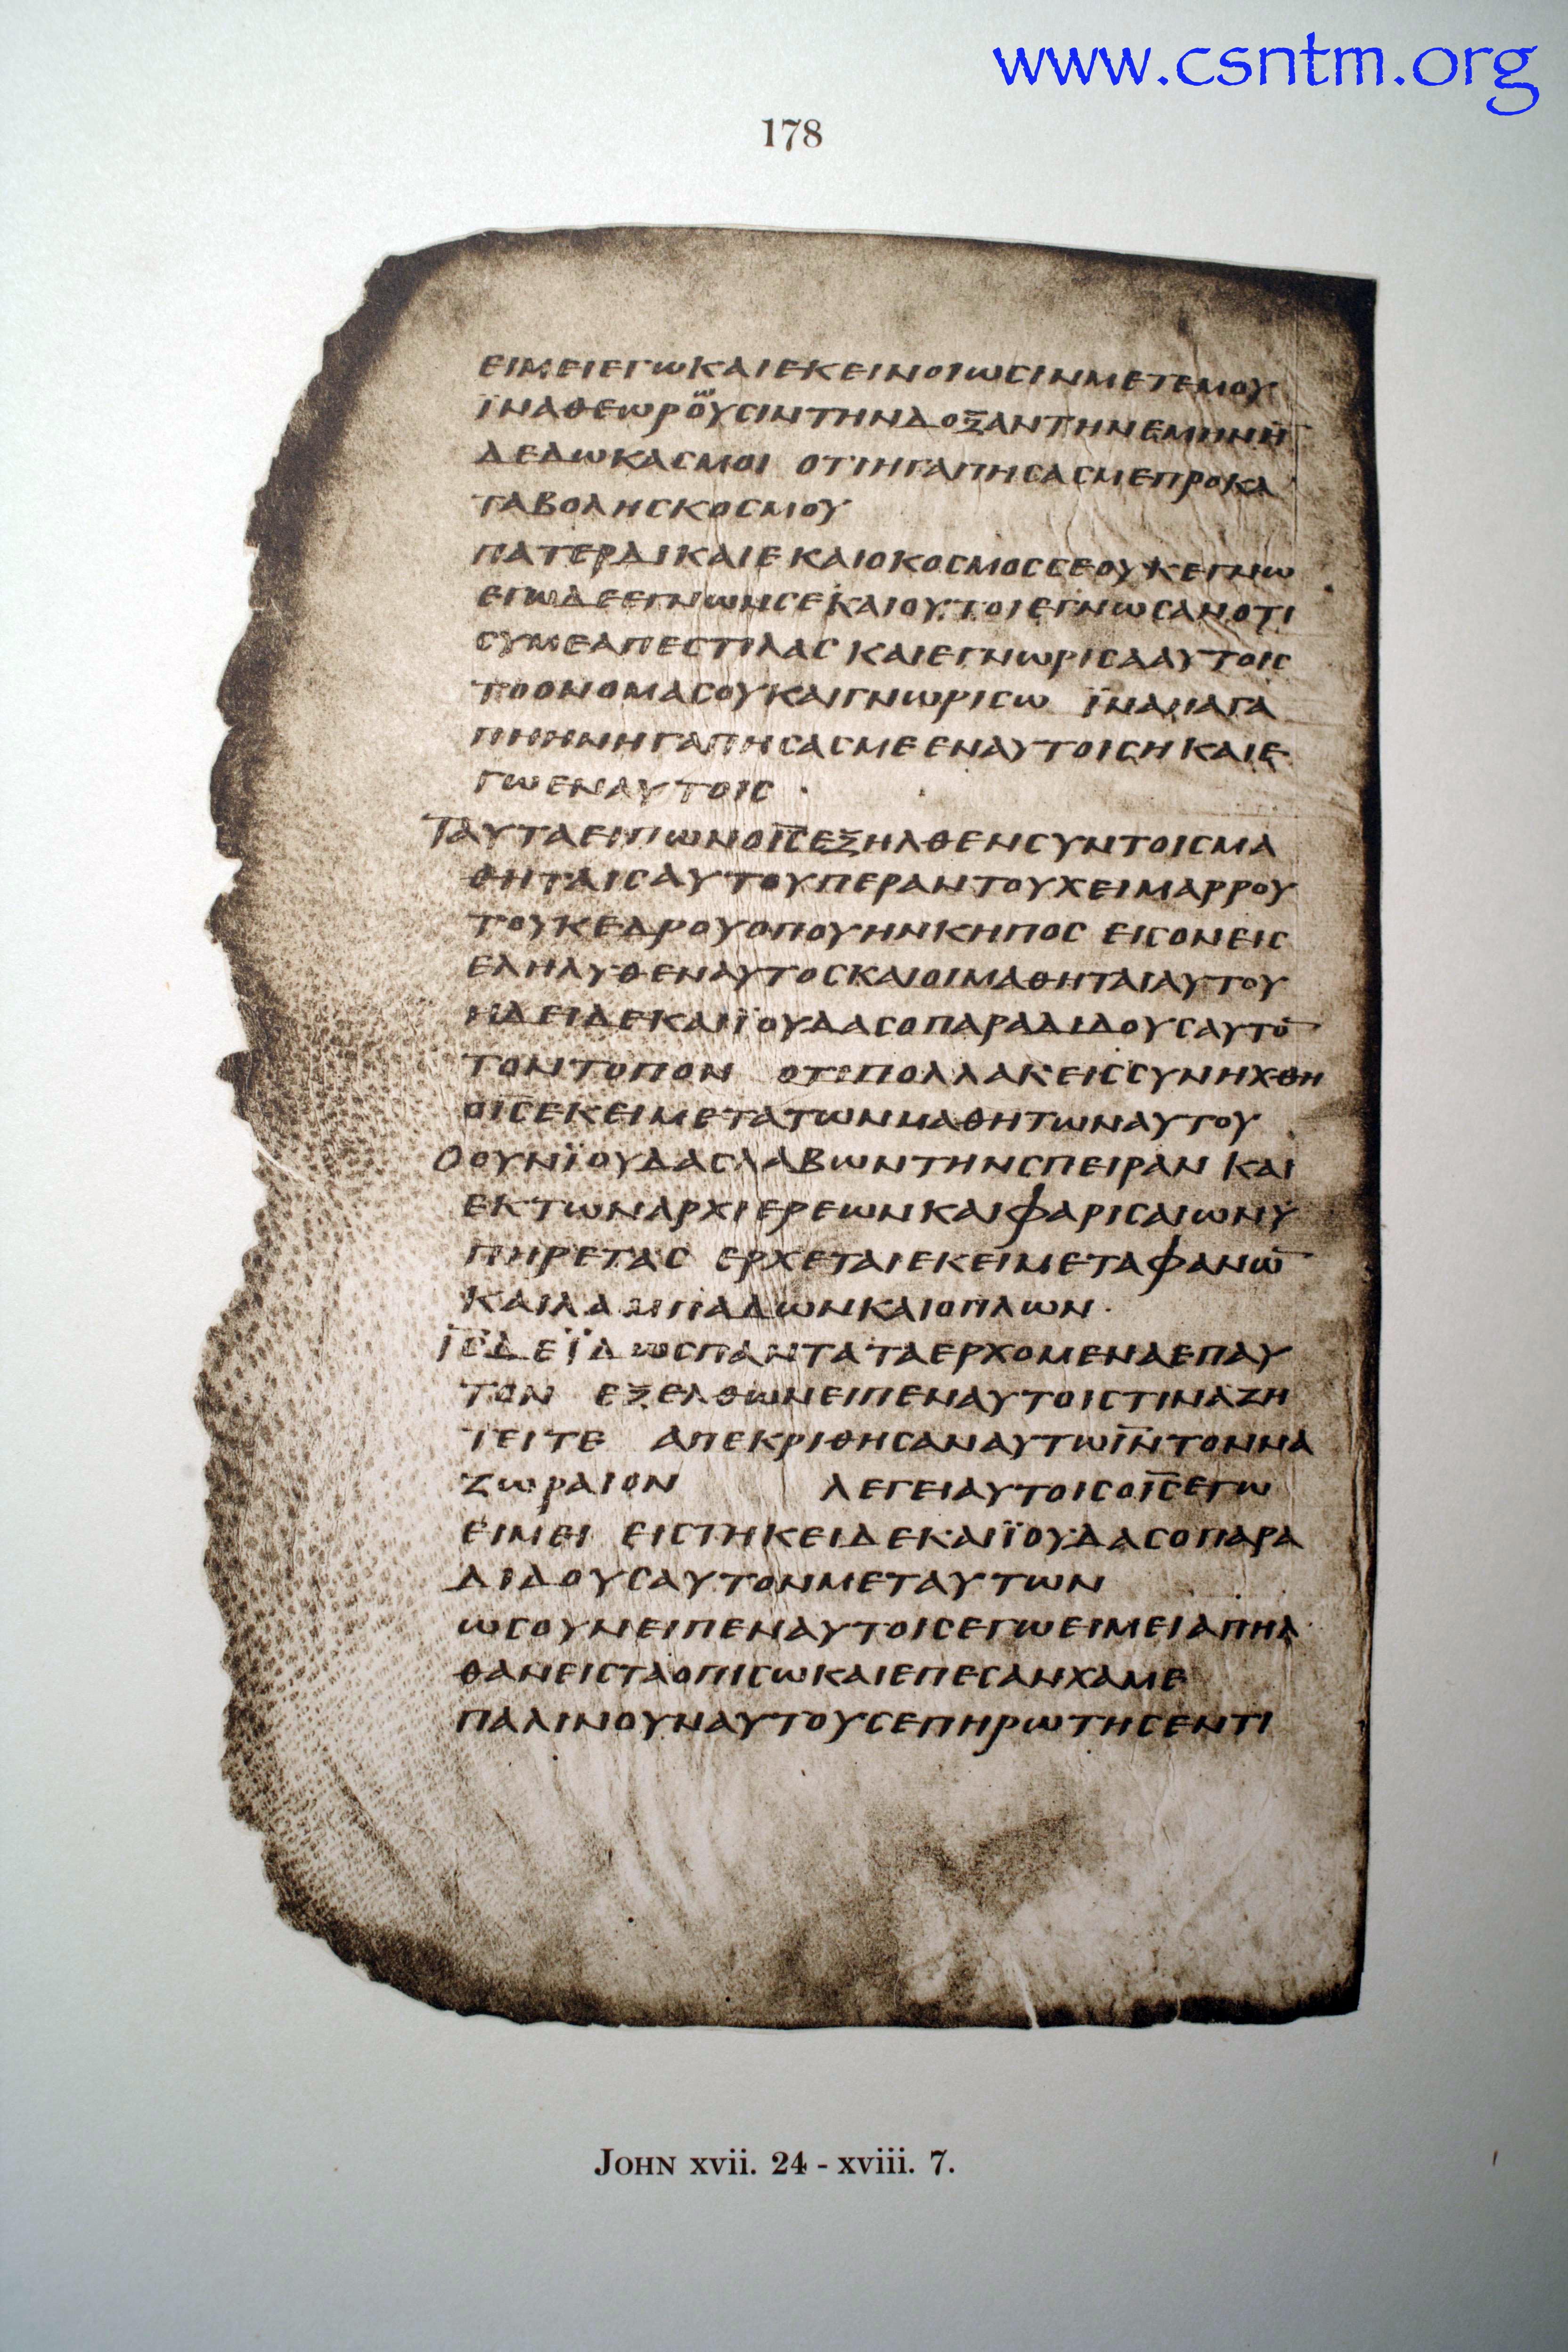 www.csntm.org
178
ΕΙΜΕΙΕΓΩΚΑΙΕΚΕΙΝΟΙΩCΙΝΜΕΤΕΜΟΥ
ΪΝΑΘΕΩΡΟΥCΙΝΤΗΝΔΟΞΑΝΤΗΝΕΜΗΝΗ̅
ΔΕΔΩΚΑCΜΟΙ ΟΤΙΗΓΑΠΗCΑCΜΕΠΡΟΚΑ
ΤΑΒΟΛΗCΚΟCΜΟΥ
ΠΑΤΕΡΔΙΚΑΙΕΚΑΙΟΚΟCΜΟCCΕΟΥΚΕΓΝΩ
ΕΓΩΔΕΕΓΝΩΝCΕΚΑΙΟΥΤΟΙΕΓΝΩCΑΝΟΤΙ
CΥΜΕΑΠΕCΤΙΛΑC ΚΑΙΕΓΝΩΡΙCΑΑΥΤΟΙC
ΤΟΟΝΟΜΑCΟΥΚΑΙΓΝΩΡΙCΩ ΪΝΑΗΑΓΑ
ΠΗΗΝΗΓΑΠΗCΑCΜΕΕΝΑΥΤΟΙCΗΚΑΙΕ
ΓΩΕΝΑΥΤΟΙC ·
ΤΑΥΤΑΕΙΠΩΝΟΙ̅C̅ΕΞΗΛΘΕΝCΥΝΤΟΙCΜΑ
ΘΗΤΑΙCΑΥΤΟΥΠΕΡΑΝΤΟΥΧΕΙΜΑΡΡΟΥ
ΤΟΥΚΕΔΡΟΥΟΠΟΥΗΝΚΗΠΟC ΕΙCΟΝΕΙC
ΕΛΗΛΥΘΕΝΑΥΤΟCΚΑΙΟΙΜΑΘΗΤΑΙΑΥΤΟΥ
ΗΔΕΙΔΕΚΑΙΪΟΥΔΑCΟΠΑΡΑΔΙΔΟΥCΑΥΤΟ̅
ΤΟΝΤΟΠΟΝ ΟΤΙΠΟΛΛΑΚΕΙCCΥΝΗΧΘΗ
ΟΙ̅C̅ΕΚΕΙΜΕΤΑΤΩΝΜΑΘΗΤΩΝΑΥΤΟΥ
ΟΟΥΝΪΟΥΔΑCΛΑΒΩΝΤΗΝCΠΕΙΡΑΝ ΚΑΙ
ΕΚΤΩΝΑΡΧΙΕΡΕΩΝΚΑΙΦΑΡΙCΑΙΩΝΫ
ΠΗΡΕΤΑC ΕΡΧΕΤΑΙΕΚΕΙΜΕΤΑΦΑΝΩ̅
ΚΑΙΛΑΜΠΑΔΩΝΚΑΙΟΠΛΩΝ·
Ι̅C̅ΔΕΪΔΩCΠΑΝΤΑΤΑΕΡΧΟΜΕΝΑΕΠΑΥ
ΤΟΝ ΕΞΕΛΘΩΝΕΙΠΕΝΑΥΤΟΙCΤΙΝΑΖΗ
ΤΕΙΤΕ ΑΠΕΚΡΙΘΗCΑΝΑΥΤΩΙ̅Ν̅ΤΟΝΝΑ
ΖΩΡΑΙΟΝ ΛΕΓΕΙΑΥΤΟΙCΟΙ̅C̅ΕΓΩ
ΕΙΜΕΙ ΕΙCΤΗΚΕΙΔΕΚΑΙΪΟΥΔΑCΟΠΑΡΑ
ΔΙΔΟΥCΑΥΤΟΝΜΕΤΑΥΤΩΝ
ΩCΟΥΝΕΙΠΕΝΑΥΤΟΙCΕΓΩΕΙΜΕΙΑΠΗΛ
ΘΑΝΕΙCΤΑΟΠΙCΩΚΑΙΕΠΕCΑΝΧΑΜΕ
ΠΑΛΙΝΟΥΝΑΥΤΟΥCΕΠΗΡΩΤΗCΕΝΤΙ
JOHN xvii. 24 - xviii. 7.